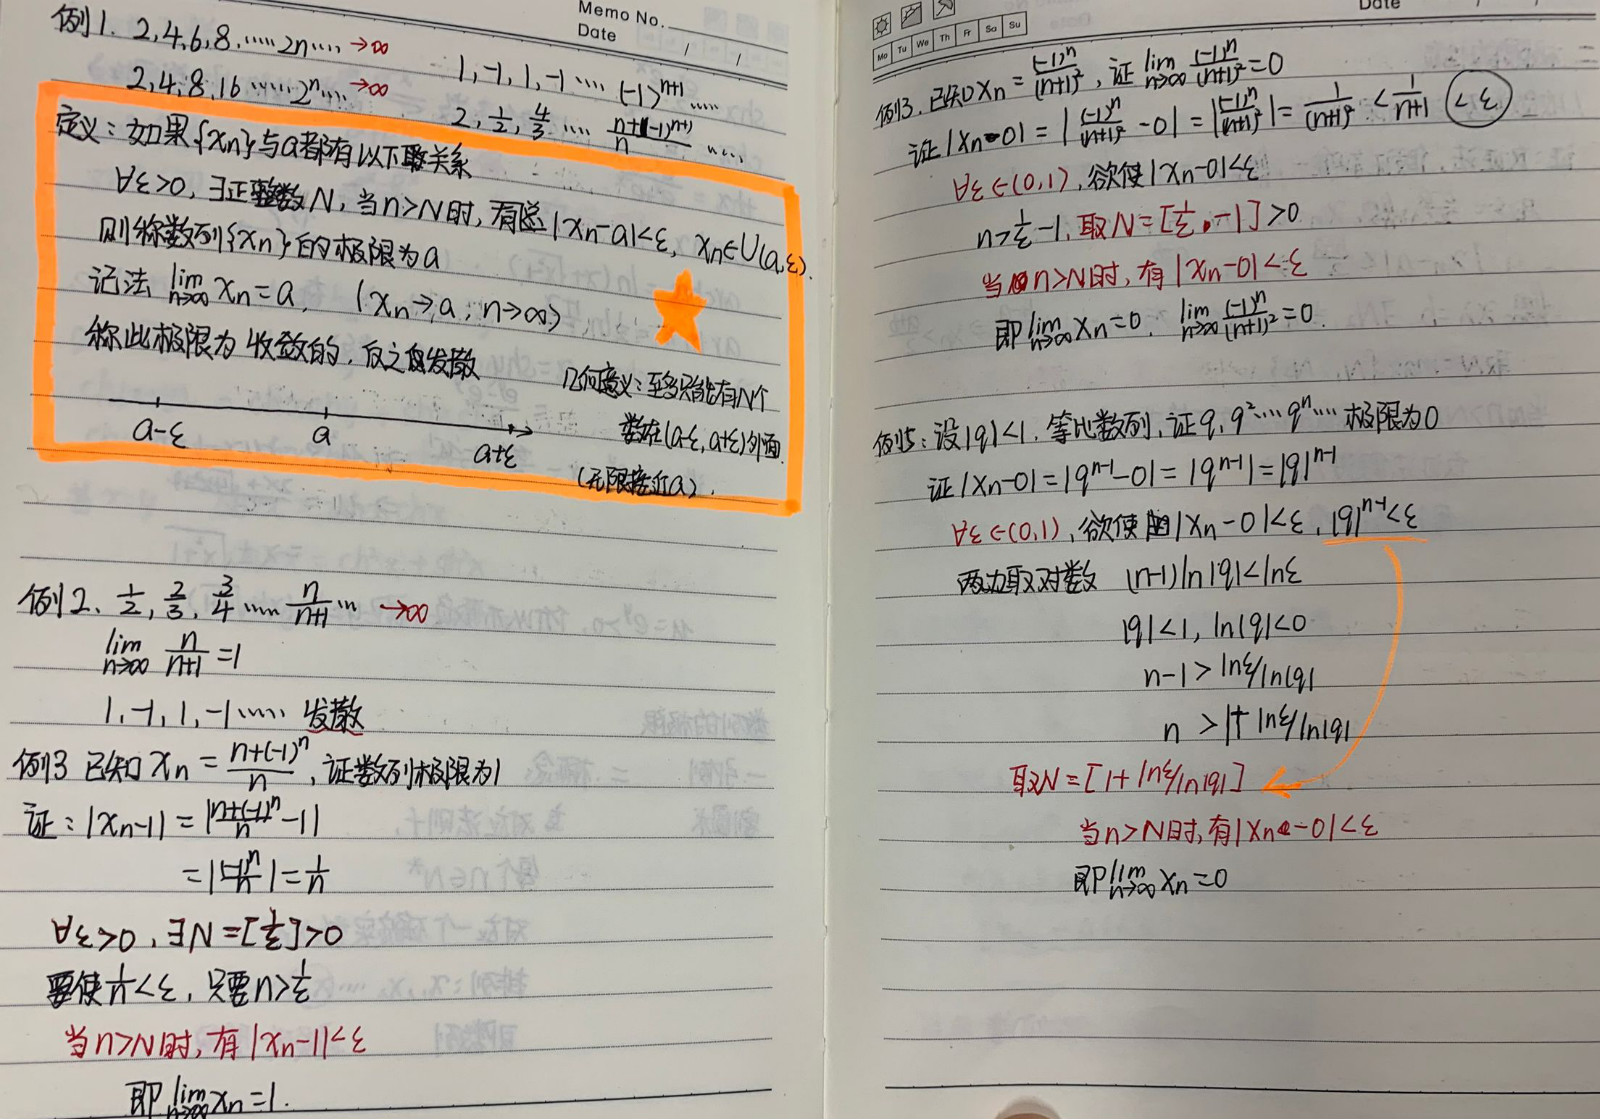 Memo No.
Date / /
例1. 2,4,6,8,……2n…… →∞
2,4,8,16……2ⁿ…… →∞
1,-1,1,-1…… (-1)ⁿ⁺¹……
2, 1/2, 4/3 …… n+(-1)ⁿ⁺¹/n ……
定义:如果{xn}与a都有以下关系
∀ε>0,∃正整数N,当n>N时,有 |xn-a|<ε, xn∈U(a,ε).
则称数列{xn}的极限为a
记法 lim n→∞ xn=a, (xn→a; n→∞)
称此极限为收敛的,反之发散
几何意义:至多只能有N个
数在(a-ε,a+ε)外面
(无限接近a).
a-ε a a+ε
例2、1/2, 2/3, 3/4 …… n/n+1 … →∞
lim n→∞ n/n+1 =1
1,-1,1,-1…… 发散
例3 已知xn = n+(-1)ⁿ/n, 证数列极限为1
证:|xn-1| = |n+(-1)ⁿ/n -1|
=|(-1)ⁿ/n|=1/n
∀ε>0,∃N=[1/ε]>0
要使1/n<ε,只要n>1/ε
当n>N时,有|xn-1|<ε
即 lim n→∞ xn=1.
Mo Tu We Th Fr Sa Su
Date / /
例3.已知xn = (-1)ⁿ/(n+1)², 证 lim n→∞ (-1)ⁿ/(n+1)² =0
证|xn-0| = |(-1)ⁿ/(n+1)² -0| = |(-1)ⁿ/(n+1)²| = 1/(n+1)² < 1/n+1 <ε
∀ε∈(0,1),欲使|xn-0|<ε
n>1/ε-1,取N=[1/ε-1]>0
当n>N时,有|xn-0|<ε
即 lim n→∞ xn=0. lim n→∞ (-1)ⁿ/(n+1)² =0.
例5:设|q|<1,等比数列,证q,q²…qⁿ… 极限为0
证|xn-0|=|qⁿ⁻¹-0|=|qⁿ⁻¹|=|q|ⁿ⁻¹
∀ε∈(0,1),欲使|xn-0|<ε,|q|ⁿ⁻¹<ε
两边取对数 (n-1)ln|q|<lnε
|q|<1, ln|q|<0
n-1>lnε/ln|q|
n>1+lnε/ln|q|
取N=[1+lnε/ln|q|]
当n>N时,有|xn-0|<ε
即 lim n→∞ xn=0